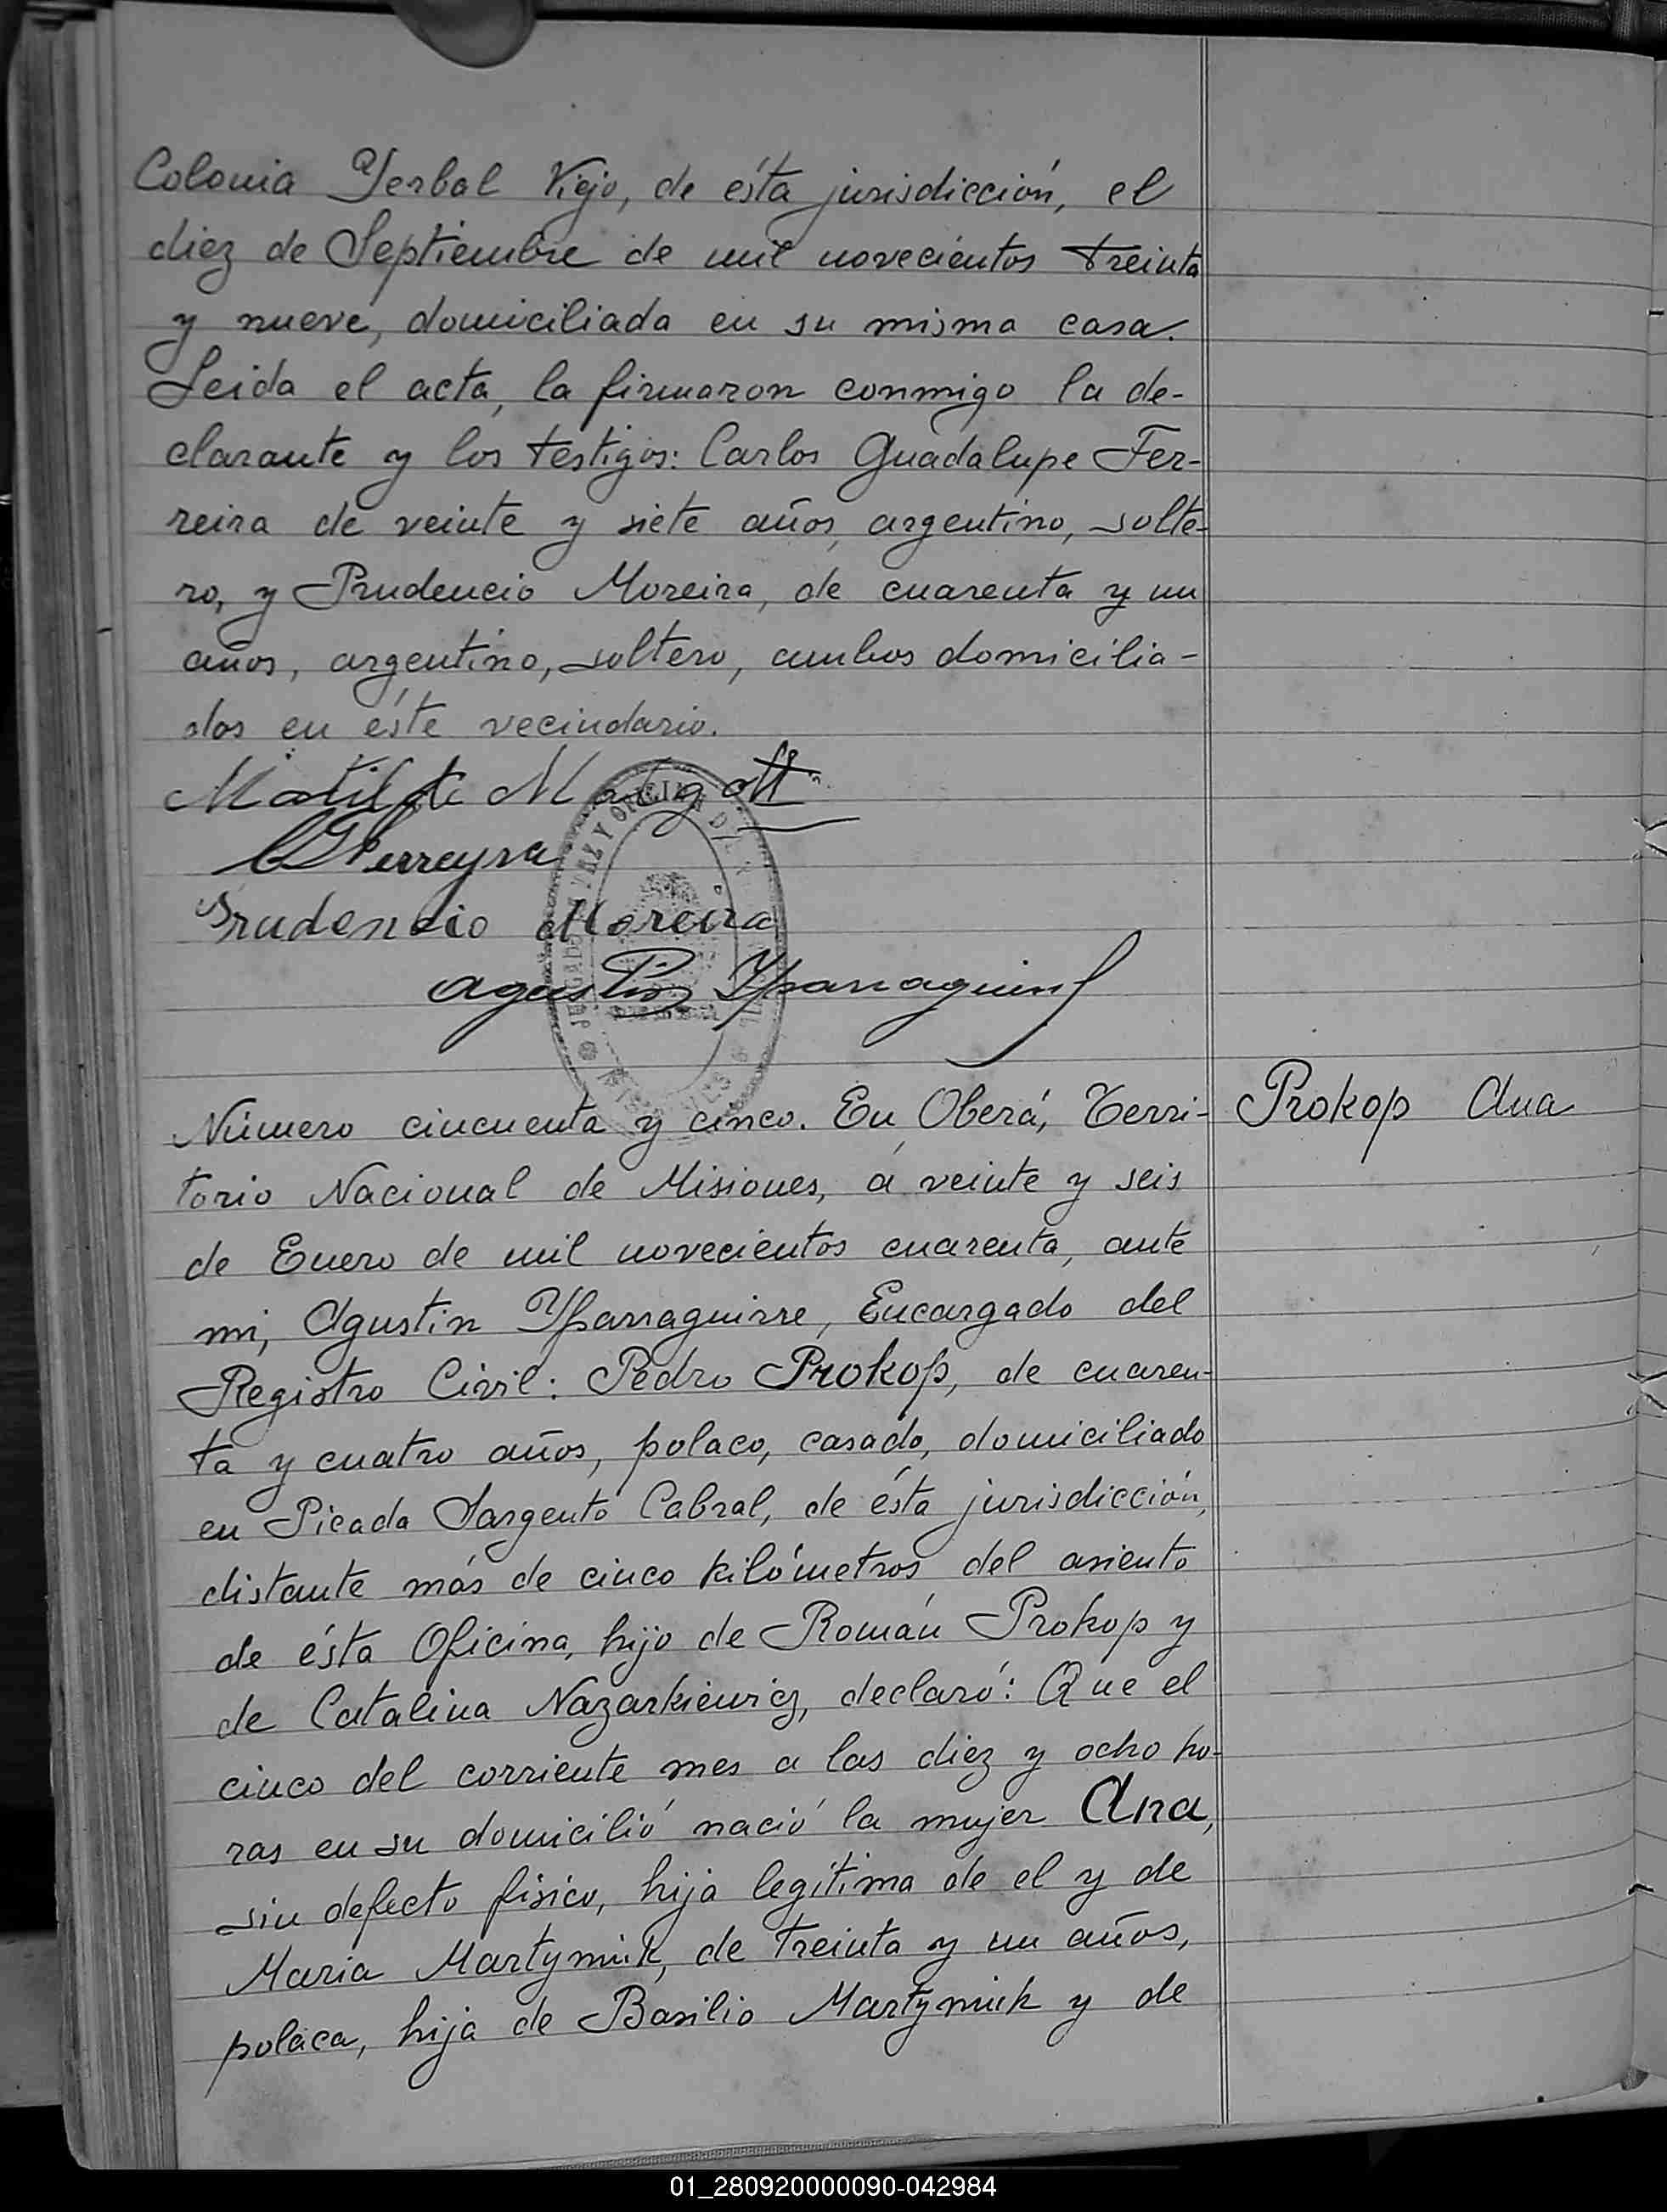 Colonia Yerbal Viejo, de ésta jurisdicción, el
diez de Septiembre de mil novecientos treinta
y nueve, domiciliada en su misma casa.
Leida el acta, la firmaron conmigo la de-
clarante y los testigos: Carlos Guadalupe Fer-
reira de veinte y siete años, argentino, solte-
ro, y Prudencio Moreira, de cuarenta y un
años, argentino, soltero, ambos domicilia-
dos en éste vecindario.
Matilde
Ferreyra
Prudencio Moreira
Agustin Yparraguirre
Número cincuenta y cinco. En Oberá, Terri-
Prokop Ana
torio Nacional de Misiones, á veinte y seis
de Enero de mil novecientos cuarenta, ante
mi, Agustin Yparraguirre, Encargado del
Registro Civil: Pedro Prokop, de cuaren-
ta y cuatro años, polaco, casado, domiciliado
en Picada Sargento Cabral, de ésta jurisdicción,
distante más de cinco kilómetros del asiento
de ésta Oficina, hijo de Román Prokop y
de Catalina Nazarkiewicz, declaró: Que el
cinco del corriente mes a las diez y ocho ho-
ras en su domicilió nació la mujer Ana,
sin defecto fisico, hija legítima de el y de
Maria Martyniuk, de treinta y un años,
polaca, hija de Basilio Martyniuk y de
01_280920000090-042984